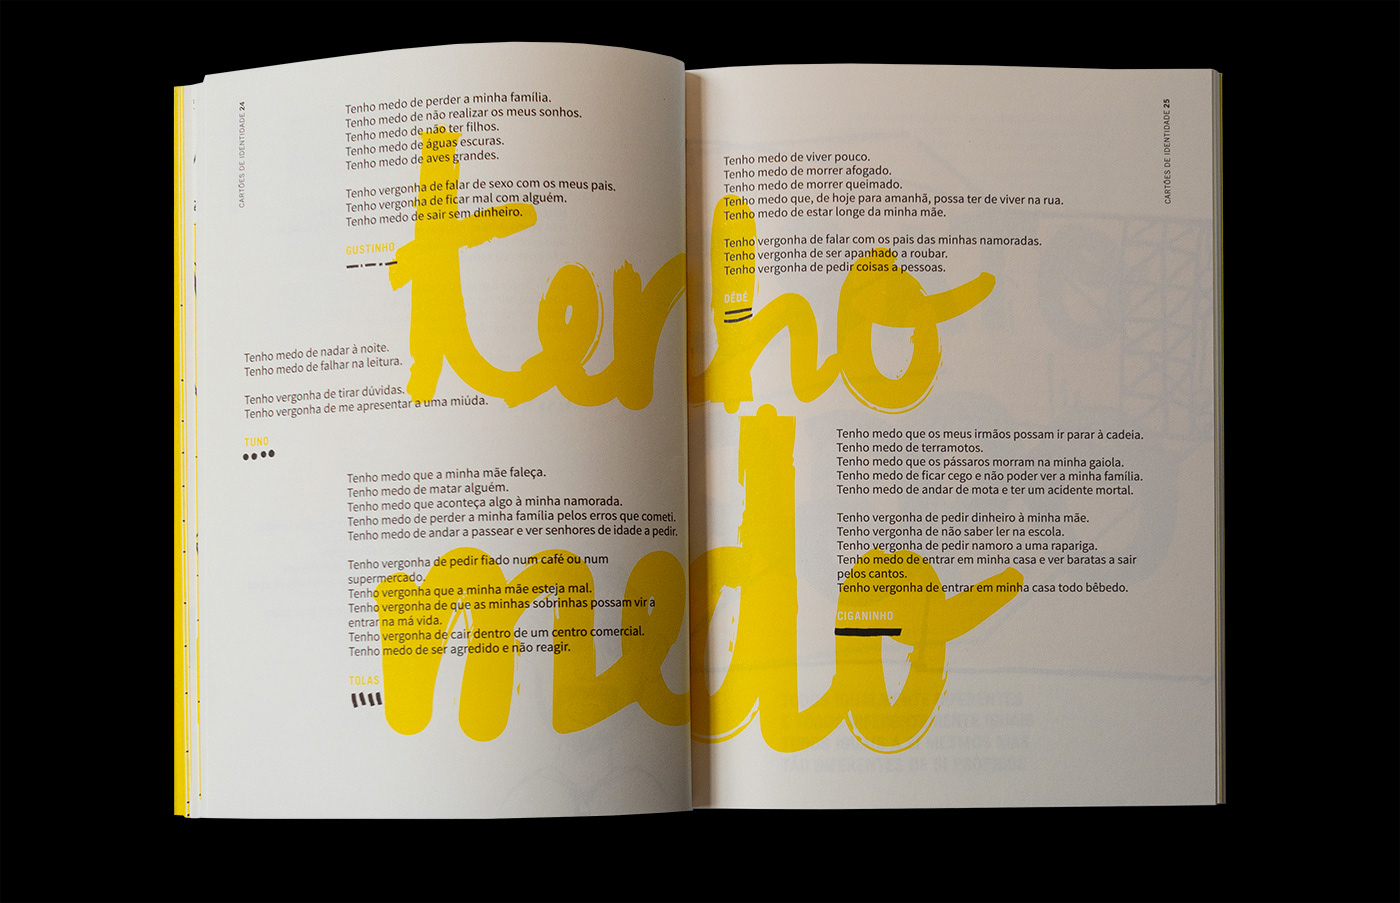 CARTÕES DE IDENTIDADE 24
Tenho medo de perder a minha família.
Tenho medo de não realizar os meus sonhos.
Tenho medo de não ter filhos.
Tenho medo de águas escuras.
Tenho medo de aves grandes.
Tenho vergonha de falar de sexo com os meus pais.
Tenho vergonha de ficar mal com alguém.
Tenho medo de sair sem dinheiro.
GUSTINHO
Tenho medo de nadar à noite.
Tenho medo de falhar na leitura.
Tenho vergonha de tirar dúvidas.
Tenho vergonha de me apresentar a uma miúda.
TUNO
Tenho medo que a minha mãe faleça.
Tenho medo de matar alguém.
Tenho medo que aconteça algo à minha namorada.
Tenho medo de perder a minha família pelos erros que cometi.
Tenho medo de andar a passear e ver senhores de idade a pedir.
Tenho vergonha de pedir fiado num café ou num
supermercado.
Tenho vergonha que a minha mãe esteja mal.
Tenho vergonha de que as minhas sobrinhas possam vir a
entrar na má vida.
Tenho vergonha de cair dentro de um centro comercial.
Tenho medo de ser agredido e não reagir.
TOLAS
tenho
medo
CARTÕES DE IDENTIDADE 25
Tenho medo de viver pouco.
Tenho medo de morrer afogado.
Tenho medo de morrer queimado.
Tenho medo que, de hoje para amanhã, possa ter de viver na rua.
Tenho medo de estar longe da minha mãe.
Tenho vergonha de falar com os pais das minhas namoradas.
Tenho vergonha de ser apanhado a roubar.
Tenho vergonha de pedir coisas a pessoas.
DÉDÉ
Tenho medo que os meus irmãos possam ir parar à cadeia.
Tenho medo de terramotos.
Tenho medo que os pássaros morram na minha gaiola.
Tenho medo de ficar cego e não poder ver a minha família.
Tenho medo de andar de mota e ter um acidente mortal.
Tenho vergonha de pedir dinheiro à minha mãe.
Tenho vergonha de não saber ler na escola.
Tenho vergonha de pedir namoro a uma rapariga.
Tenho medo de entrar em minha casa e ver baratas a sair
pelos cantos.
Tenho vergonha de entrar em minha casa todo bêbedo.
CIGANINHO